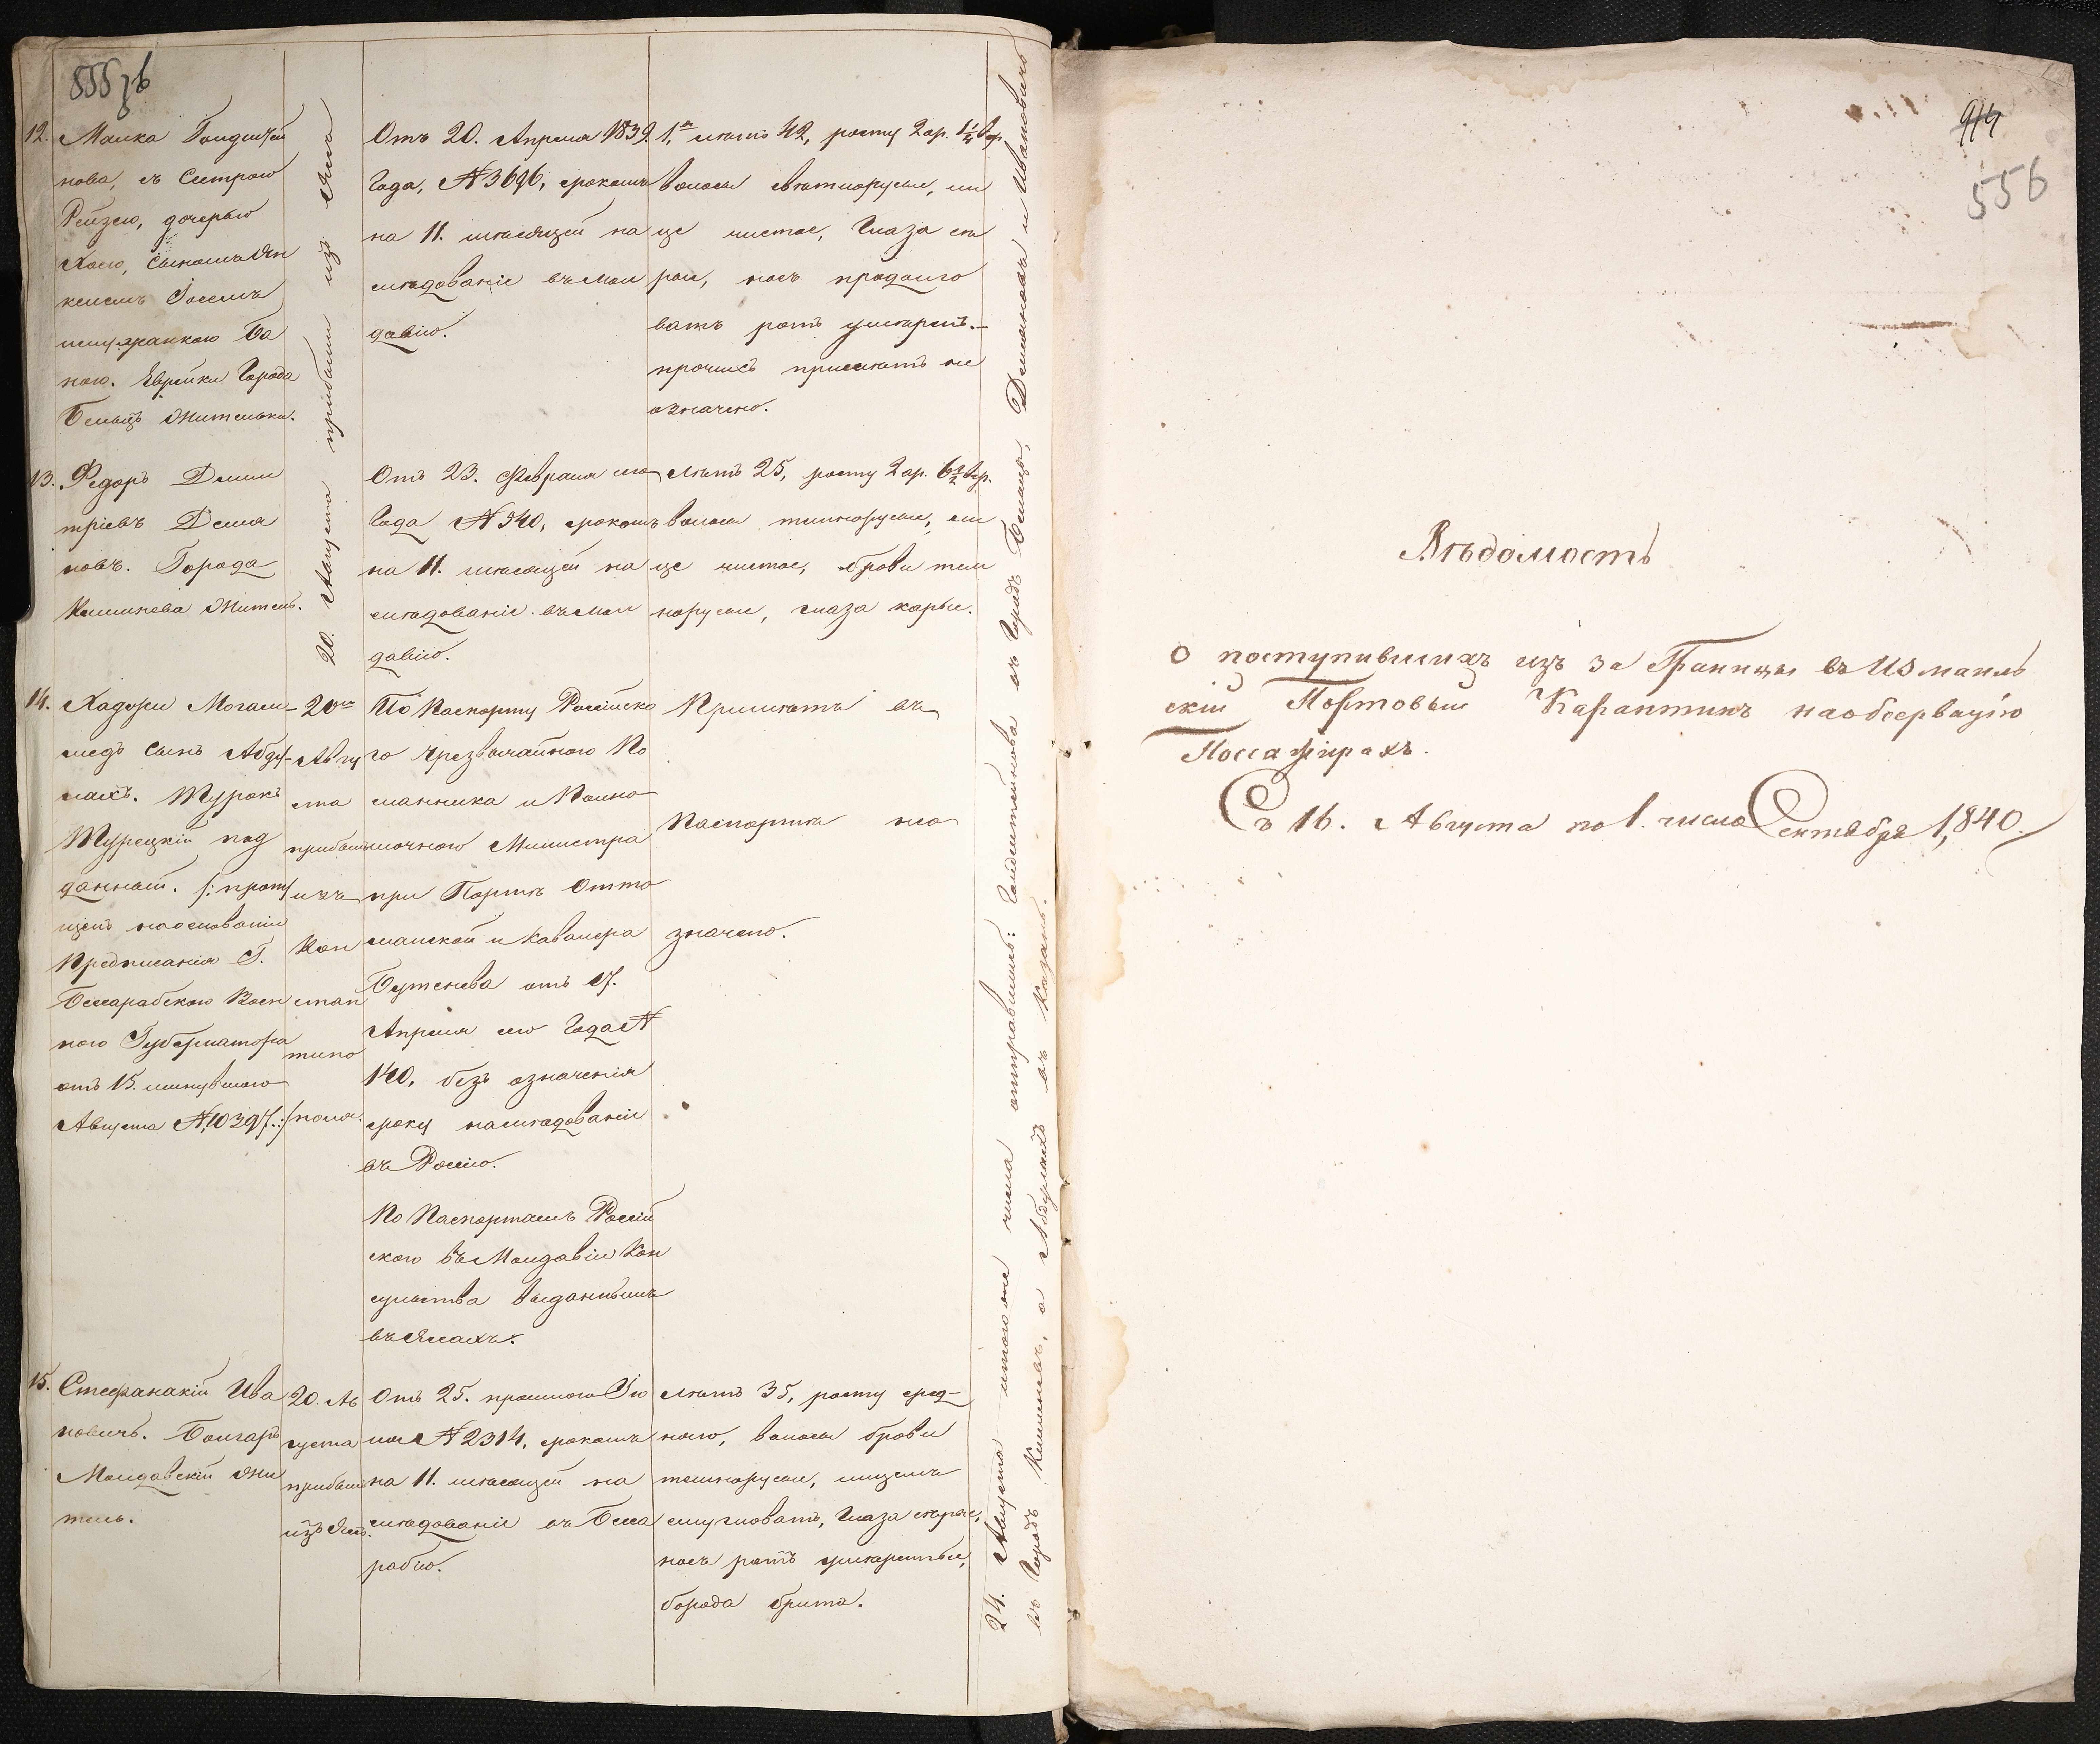 12. Малка Гольдштей
нова, съ Сестрою
Рейзею, дочерью
Хаею, Сыномъ Ян
келемъ
Ба
ною. Еврейки Города
Бельцъ Жительки.
20. Августа прибыли изъ Яссъ
Отъ 20. Апреля 1839.
Года, № 3696, срокомъ
на 11. месяцей на
следованіе въ Мол
давію.
1.я летъ 42, росту 2 ар. 1¼ вер.
волосы светлорусые, ли
це чистое, Глаза се
рые, носъ продолго
ватъ ротъ умеренъ.–
прочихъ приметъ не
означено.
13. Федоръ Дими
тріевъ Демя
новъ. Города
Кишинева Житель.
Отъ 23. Февраля сего
Года № 940, срокомъ
на 11. месяцей на
следованіе въ Мол
давію.
Летъ 25, росту 2 ар. 6½ вер.
волосы темнорусые, ли
це чистое, брови тем
норусые, глаза карые.
14. Хаджи Могам–
медъ Сынъ Абду–
лахъ. Турокъ
Турецкій под
данный. /: пропу
щенъ на основаніи
Предписанія Г.
Бессарабскаго Воен
наго Губернатора
отъ 15. минувшаго
Августа № 10397. :/
20го
Авгу
ста
прибылъ
изъ
Кон
стан
тино
поля.
По Паспорту Россійска
го Чрезвычайнаго По
сланника и Полно
мочнаго Министра
при Порте Отто
манской и Кавалера
Бутенева отъ 17.
Апреля сего Года №
140, безъ означенія
сроку на следованіе
въ Россію.
Приметъ въ
Паспорте не о
значено.
По Паспортамъ Россій
скаго въ Молдавіи Кон
сульства выданнымъ
въ Яссахъ.
15. Стефанакій Ива
новичь. Болгаръ
Молдавскій Жи
тель.
20. Ав
густа
прибылъ
изъ Яссъ.
Отъ 25. прошлаго Ію
ля № 2314, срокомъ
на 11. месяцей на
следованіе въ Бесса
рабію.
Летъ 35, росту сред–
няго, волосы брови
темнорусые, лицемъ
смугловатъ, Глаза серые,
носъ ротъ умеренные,
борода брита.
24. Августа итого же числа отправились: Гольдштейнова въ Городъ Бельцы, Демяновъ и Ивановичь
въ Городъ Кишиневъ, а Абдулахъ въ Казань.
914
556
Вѣдомость
о поступившихъ изъ за Границы въ Измаиль
скій Портовый Карантинъ на обсервацію
Пассажирахъ.
Съ 16. Августа по 1. число Сентября 1840.